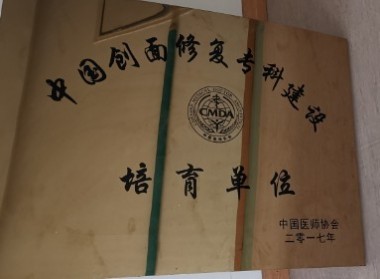 中国创面修复专科建设
CMDA
培育单位
中国医师协会
二零一七年